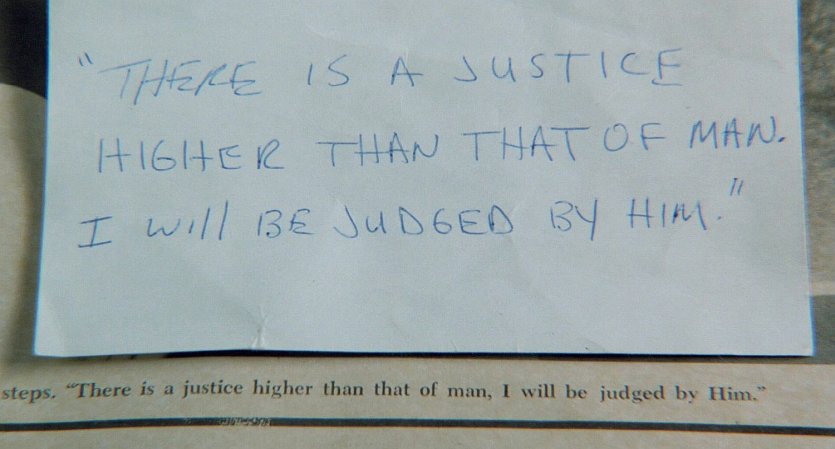 "THERE IS A JUSTICE
HIGHER THAN THAT OF MAN.
I will BE JUDGED BY HIM."
steps. “There is a justice higher than that of man, I will be judged by Him.”